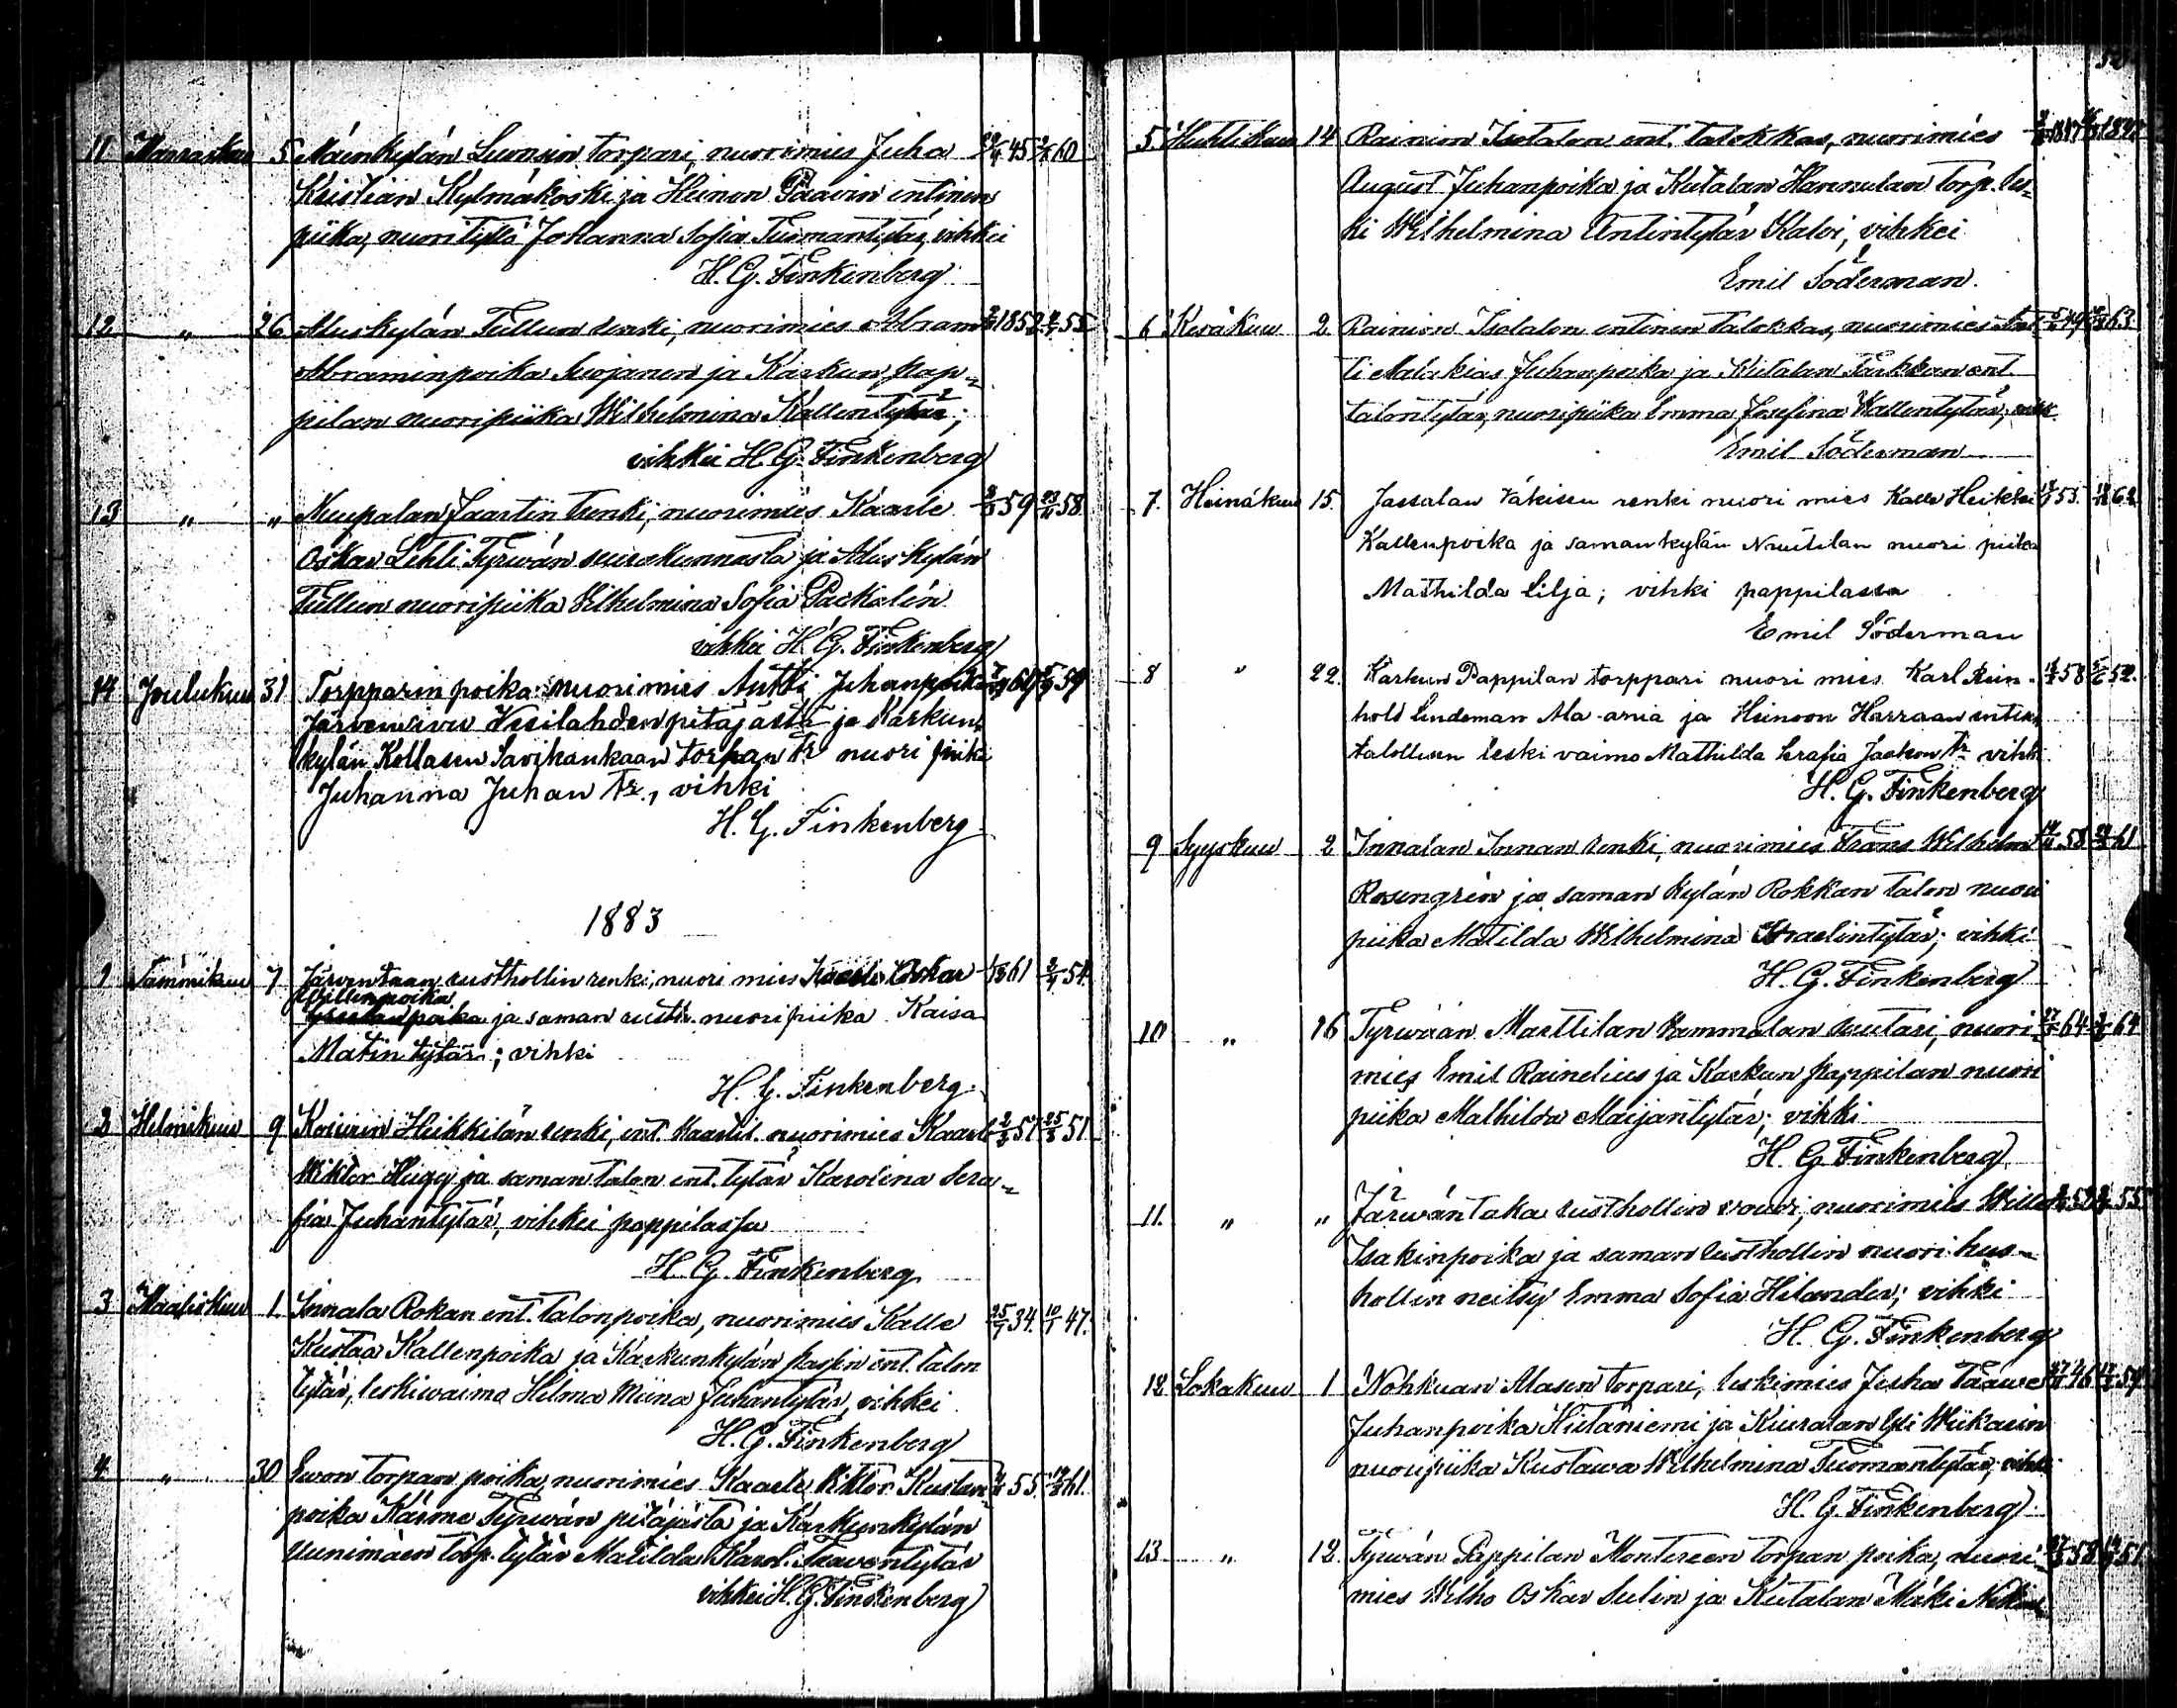 11 Marraskuu 5 Mäenkylän Luonsin torpari, nuorimies Juha 45 60
Kristian Kylmäkoski ja Heinon Paavin entinen
piika, nuori tyttö Johanna Sofia Tuomantytär, vihkei
H. G. Finkenberg
12 " 26 Aluskylän Tullun renki, nuorimies Abram 1852 55
Abraminpoika Suojanen ja Karkun pap-
pilan nuoripiika Wilhelmina Kallentytär;
vihkei H. G. Finkenberg
13 " " Nuupalan Jaartin renki, nuorimies Kaarle 59 58
Oskar Lehti Tyrwän seurakunnasta ja Aluskylän
Tullun nuoripiika Wilhelmina Sofia Packalén
vihkei H. G. Finkenberg
14 Joulukuu 31 Torpparin poika nuori mies Antti Juhanpoika 60 59
Järvensivu Vesilahden pitäjästä ja Karkun
kylän Kollasen Savikankaan torpan tr nuori piika
Juhanna Juhan tr., vihki
H. G. Finkenberg
1883
1 Tammikuu 7 Järventaan rusthollin renki, nuori mies Kaarle Oskar 61 54
Willenpoika
ja saman rusth. nuori piika Kaisa
Matin tytär; vihki
H. G. Finkenberg
2 Helmikuu 9 Koiurin Heikkilän renki, ent. nuorimies Kaarle 2/3 51 25/3 51
Wiktor Hugg ja saman talon ent. tytär Karolina Sera-
fia Juhantytär, vihkei pappilassa
H. G. Finkenberg
3 Maaliskuu 1. Innala Rokan ent. talonpoika, nuorimies Kalle 25/7 34. 10/1 47.
Kustaa Kallenpoika ja Karkunkylän ent. talon
tytär, leskiwaimo Helma Miina Juhantytär, vihkei
H. G. Finkenberg
4 " 30 torpan poika, nuorimies Kaarle Viktor Kustaan 55 61.
poika Kärme Tyrwän pitäjästä ja Karkunkylän
Uunimäen torp. tytär Matilda Karol. Taaventytär
vihkei H. G. Finkenberg
5 Huhtikuu 14 Rainion Isotalon ent. talokkas, nuorimies 1847 1842
August Juhanpoika ja Kutalan Hannulan torp. les-
ki Wilhelmina Antintytär Kalvi, vihkei
Emil Söderman.
6 Kesäkuu 2 Rainion Isotalon entinen talokkas, nuorimies Ant- 49 63
ti Malakias Juhanpoika ja Kutalan Tarkkan ent
talontytär, nuoripiika Emma Josefina Kallentytär,
Emil Söderman
7. Heinäkuu 15. Jassalan Väkisen renki nuori mies Kalle Heikki 53. 62
Kallenpoika ja samankylän Nuutilan nuori piika
Mathilda Lilja; vihki pappilassa
Emil Söderman
8 " 22. Karkun Pappilan torppari nuori mies Karl Rein- 58 52.
hold Lindeman Ala-aria ja Heinoon Harraan entisen
talollisen leski vaimo Mathilda Serafia Jaakon tr vihki.
H. G. Finkenberg
9 Syyskuu 2 Innalan Innan renki, nuorimies Frans Wilhelm 58 61
Rosengrén ja saman kylän Rokkan talon nuori
piika Matilda Wilhelmina Israelintytär; vihki
H. G. Finkenberg
10 " 16 Tyrwään Marttilan Wammalan suutari, nuori- 64 64
mies Emil Rainelius ja Karkun pappilan nuori
piika Mathilda Maijantytär; vihki
H. G. Finkenberg
11. " " Järwäntaka rusthollin vouri, nuorimies Wille 52 55
Isakinpoika ja saman rusthollin nuori hus-
hollin neitsy Emma Sofia Hilander; vihki
H. G. Finkenberg
12 Lokakuu 1 Nohkuan Alasen torpari, leskimies Juha Taawe 46 54
Juhanpoika Hiitaniemi ja Kiuralan Yli Wiikarin
nuoripiika Kustawa Wilhelmina Tuomantytär, vihki
H. G. Finkenberg
13 " 12. Tyrwän Pappilan Montereen torpan poika, nuori 58 51
mies Wilho Oskar Sulin ja Kutalan Mäki